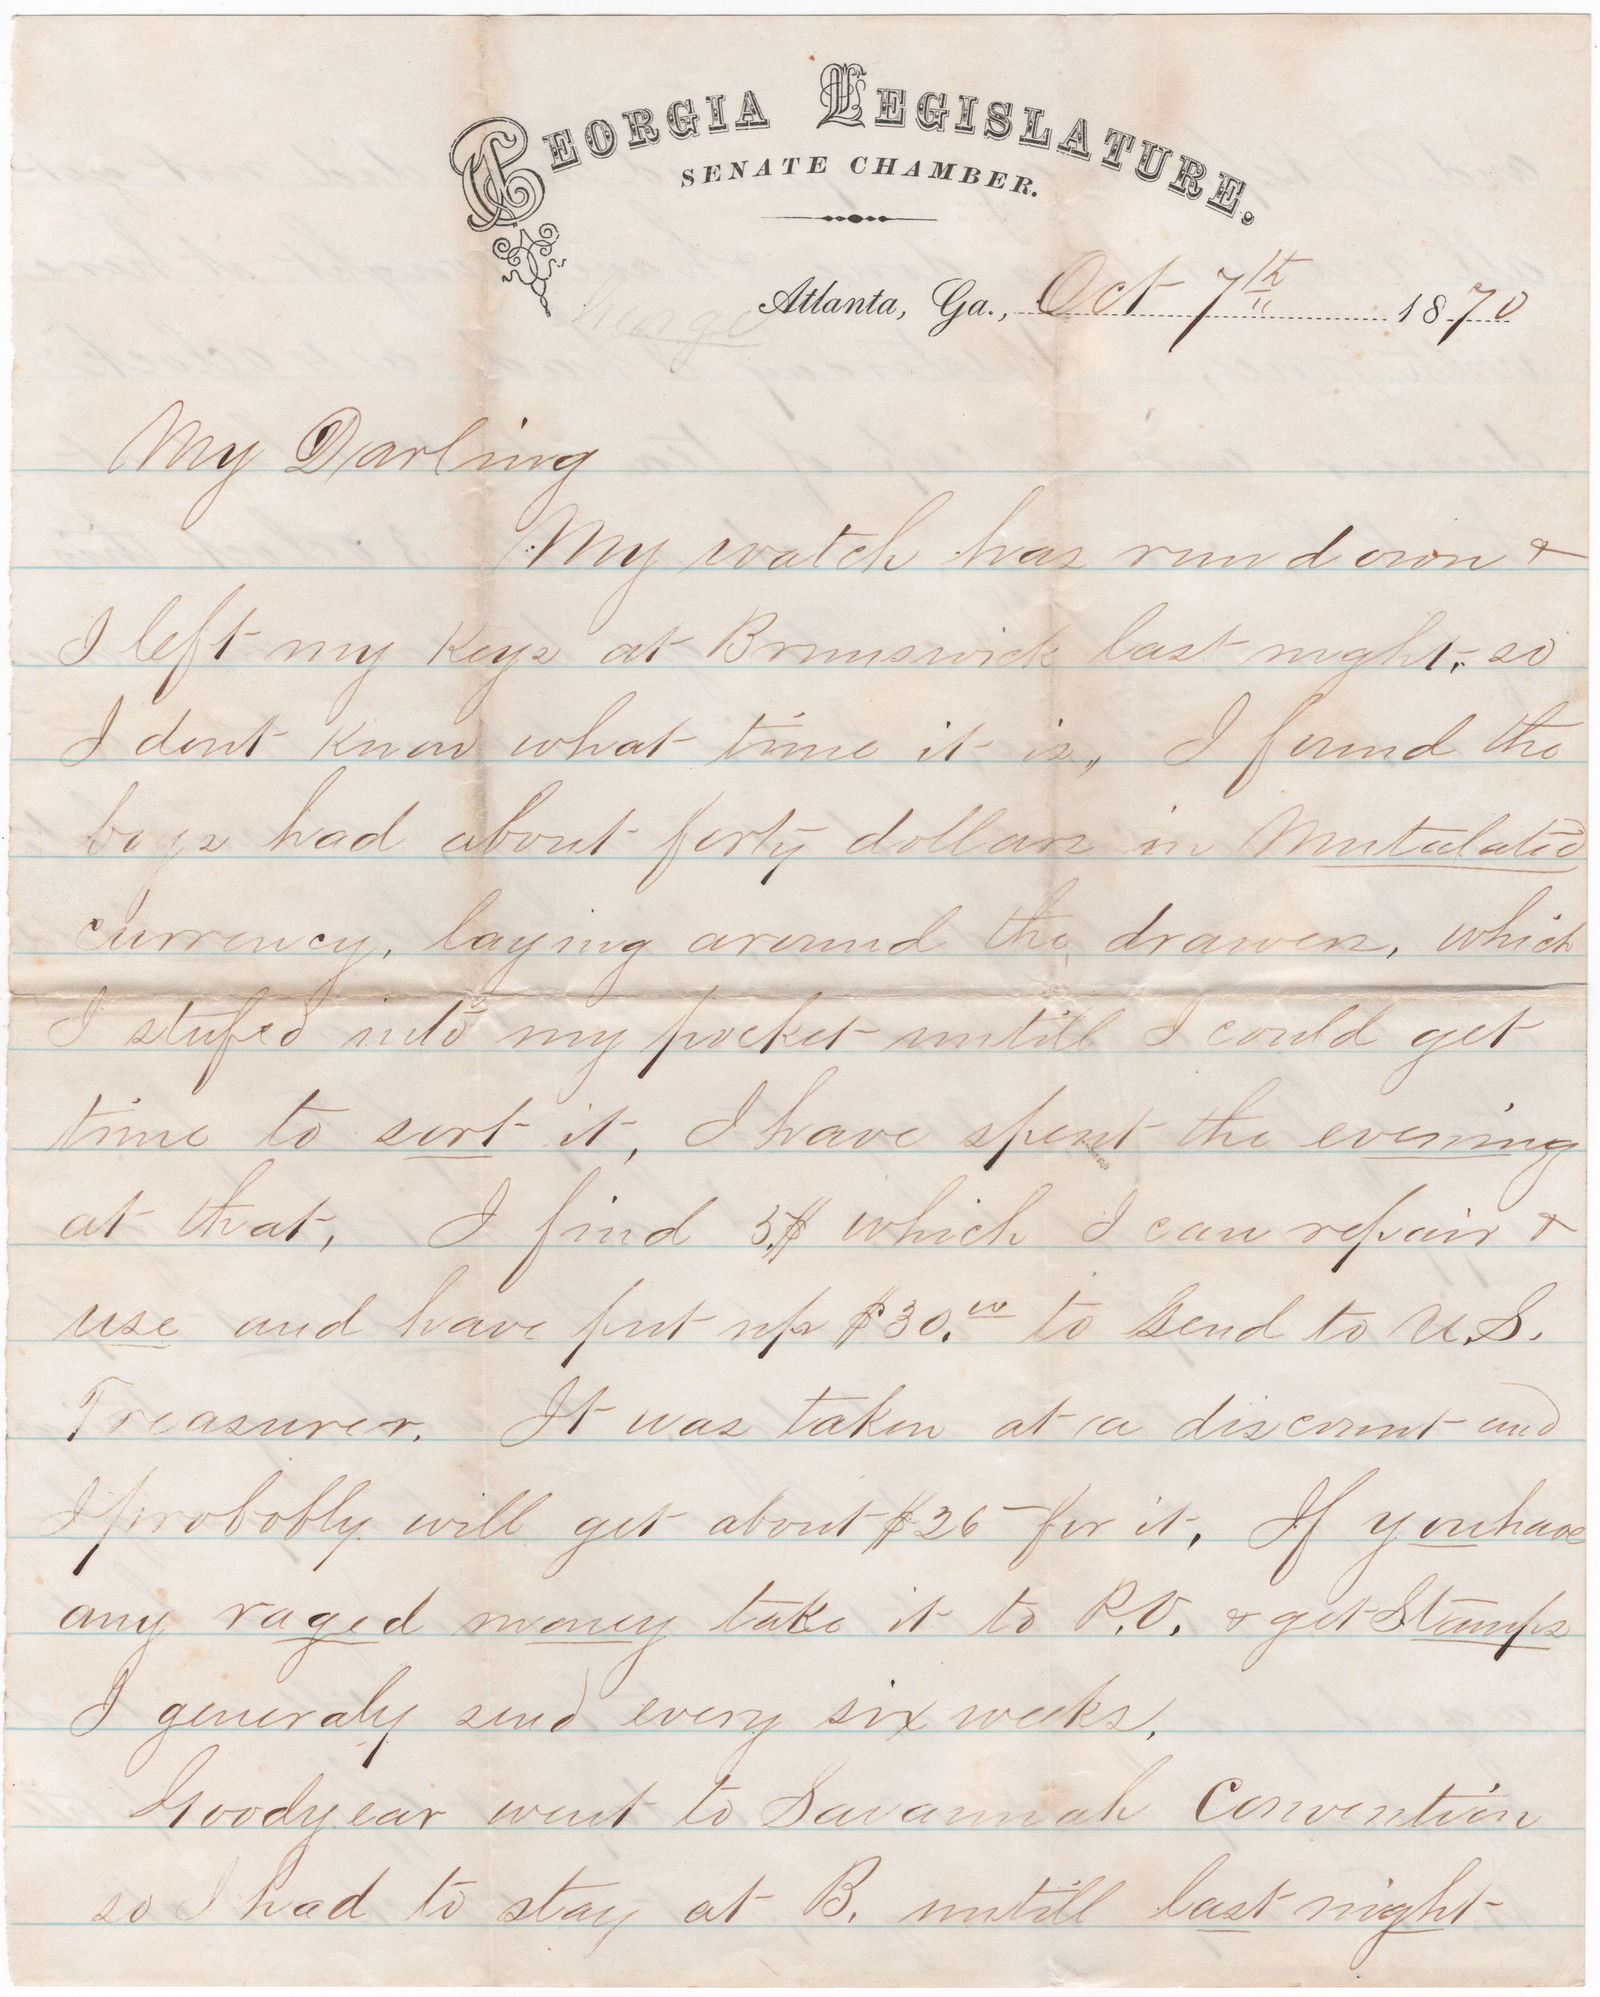 GEORGIA LEGISLATURE.
SENATE CHAMBER.
Atlanta, Ga., Oct 7th 1870
My Darling
My watch has run down &
I left my keys at Brunswick last night, so
I dont know what time it is, I found the
boys had about forty dollars in Mutulated
currency, laying around the drawers, which
I stufed into my pocket untill I could get
time to sort it, I have spent the evening
at that, I find 5$ which I can repair &
use and have put up $30.00 to Send to U.S.
Treasurer. It was taken at a discount and
I probobly will get about $26 for it, If you have
any raged money take it to P.O. & get Stamps
I generaly send every six weeks.
Goodyear went to Savannah Convention
so I had to stay at B. untill last night